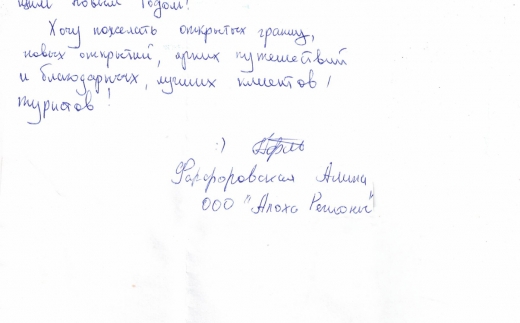 щим Новым Годом!
Хочу пожелать открытых границ,
новых открытий, ярких путешествий
и благодарных, лучших клиентов /
туристов!
:)
Фарфоровская Алина
ООО "Алоха Регионы"